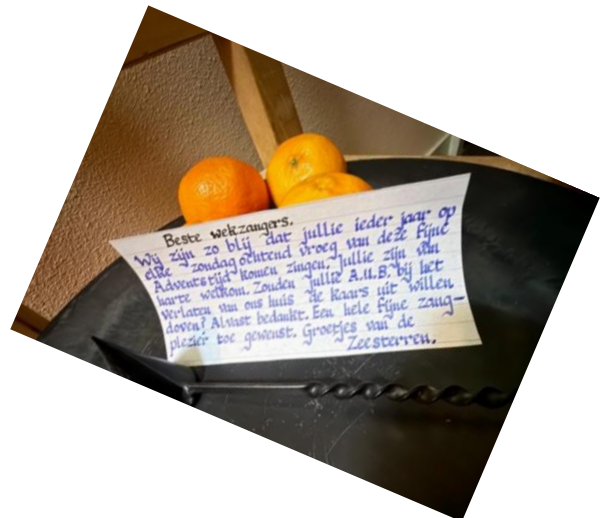 Beste wekzangers.
Wij zijn zo blij dat jullie ieder jaar op
elke zondagochtend vroeg van deze fijne
Adventstijd komen zingen. Jullie zijn van
harte welkom. Zouden jullie A.U.B. bij het
verlaten van ons huis de kaars uit willen
doven? Alvast bedankt. Een hele fijne zang-
plezier toe gewenst. Groetjes van de
Zeesterren.